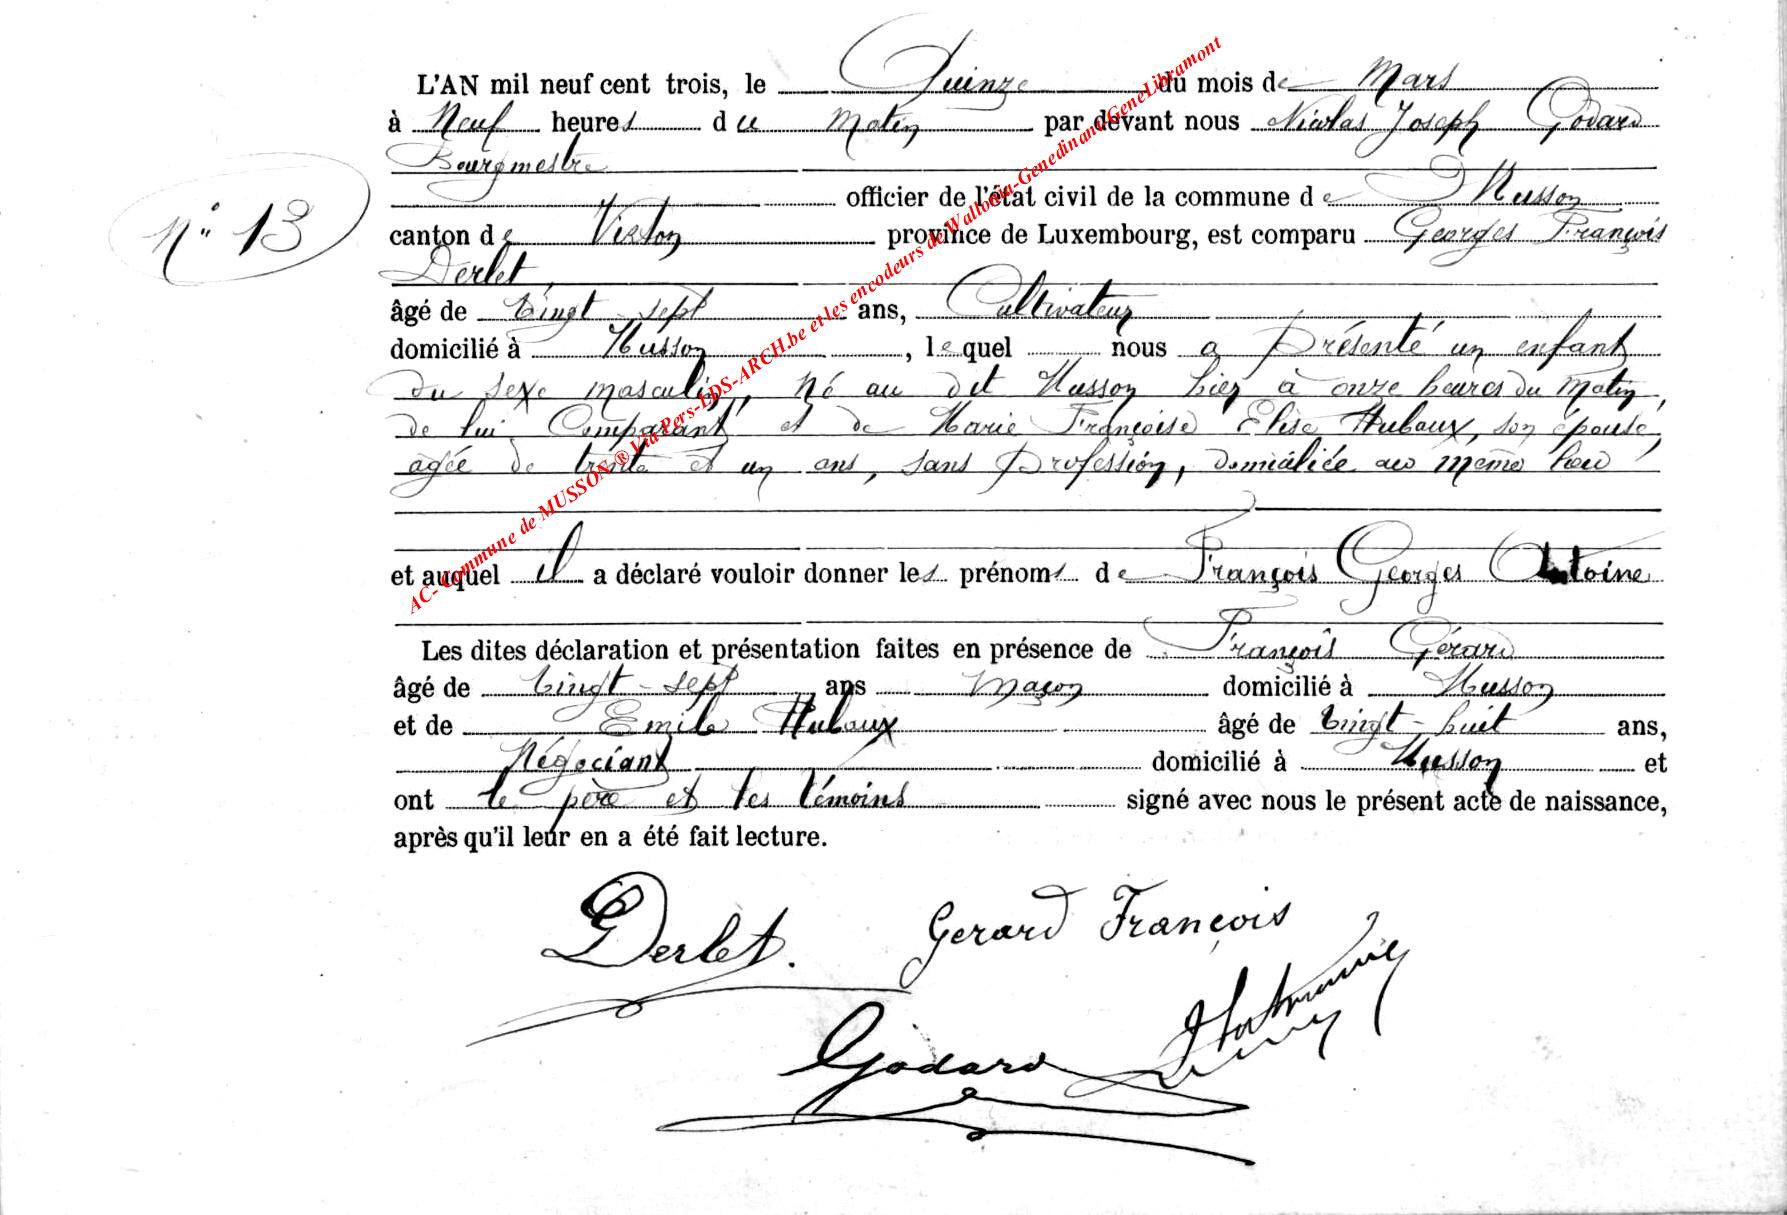 L'AN mil neuf cent trois, le Quinze du mois de Mars
à Neuf heures du Matin par devant nous Nicolas Joseph Godard
Bourgmestre
officier de l'état civil de la commune de Musson
N° 13
canton de Virton province de Luxembourg, est comparu Georges François
Derlet,
âgé de vingt-sept ans, Cultivateur
domicilié à Musson, lequel nous a présenté un enfant
du sexe masculin, né au dit Musson hier à onze heures du Matin,
de lui Comparant et de Marie Françoise Elise Hubaux, son épouse,
agée de trente et un ans, sans profession, domiciliée au même lieu
et auquel il a déclaré vouloir donner les prénoms de François Georges Antoine
Les dites déclaration et présentation faites en présence de François Gérard
âgé de vingt-sept ans Maçon domicilié à Musson
et de Emile Hubaux âgé de vingt-huit ans,
Négociant domicilié à Musson et
ont le père et les témoins signé avec nous le présent acte de naissance,
après qu'il leur en a été fait lecture.
GDerlet.
Gerard François
Godard
AC- Commune de MUSSON ® Via Pers-LDS-ARCH.be et les encodeurs de Wallonia-Genedinant-GeneLibramont